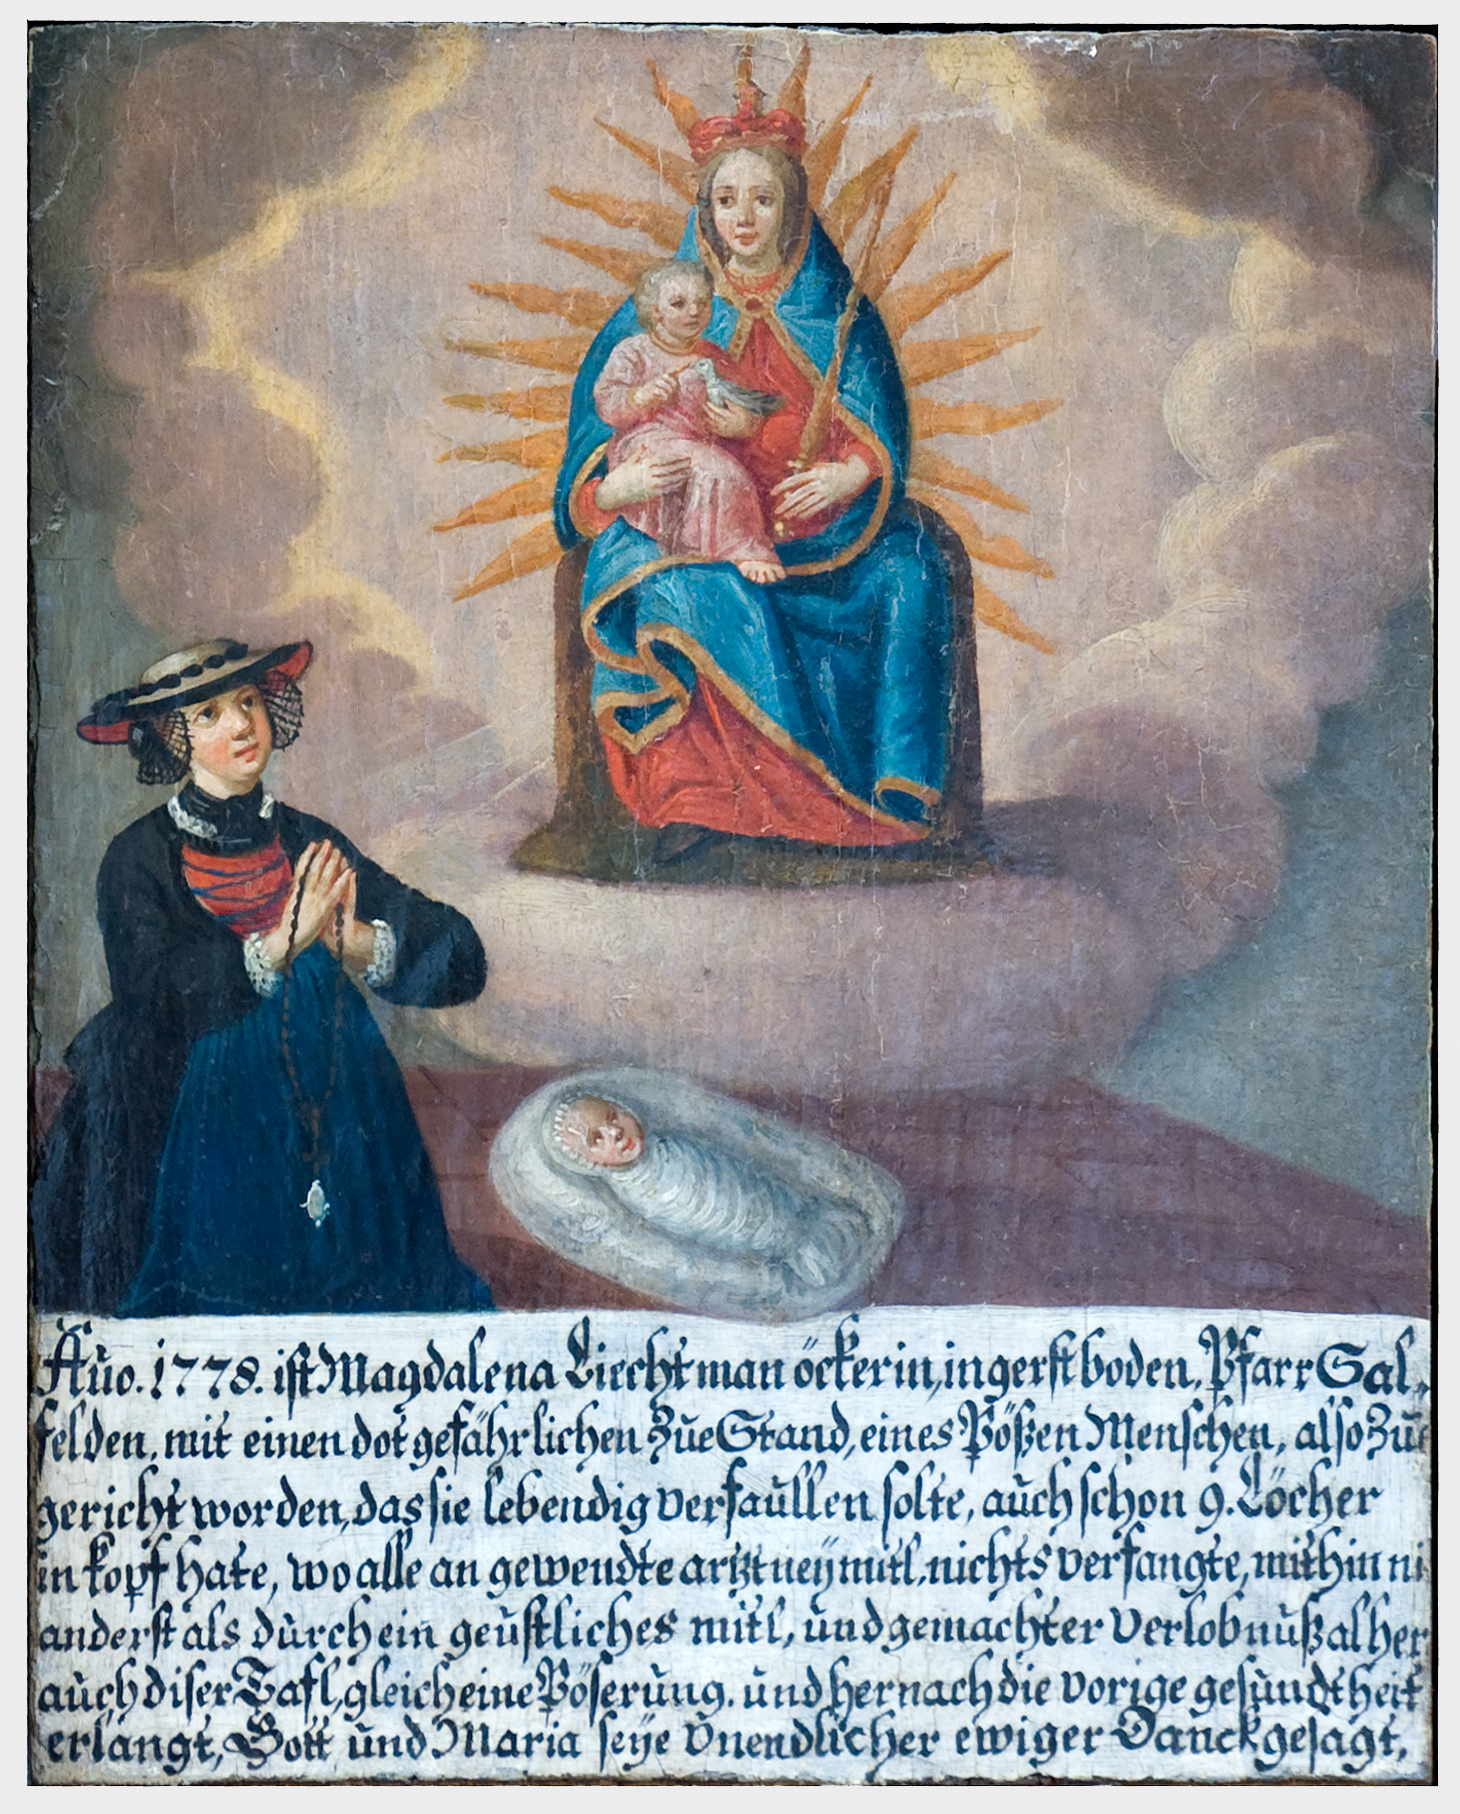 Año. 1778. ist Magdalena Liechtman öckerin, in gerstboden, Pfarr Sal„
felden, mit einen dot gefährlichen Zue Stand, eines Pößen Menschen, also Zue
gericht worden, das sie lebendig verfaullen solte, auch schon 9. Löcher
in kopf hate, wo alle an gewendte artztneÿ mitl, nichts verfangte, mithin ni
anderst als durch ein geüstliches mitl, und gemachter Verlobnuß alher
auch diser Tafl, gleich eine Pöserung. und hernach die vorige gesundtheit
erlangt, Gott und Maria seÿe Unendlicher ewiger Danck gesagt.